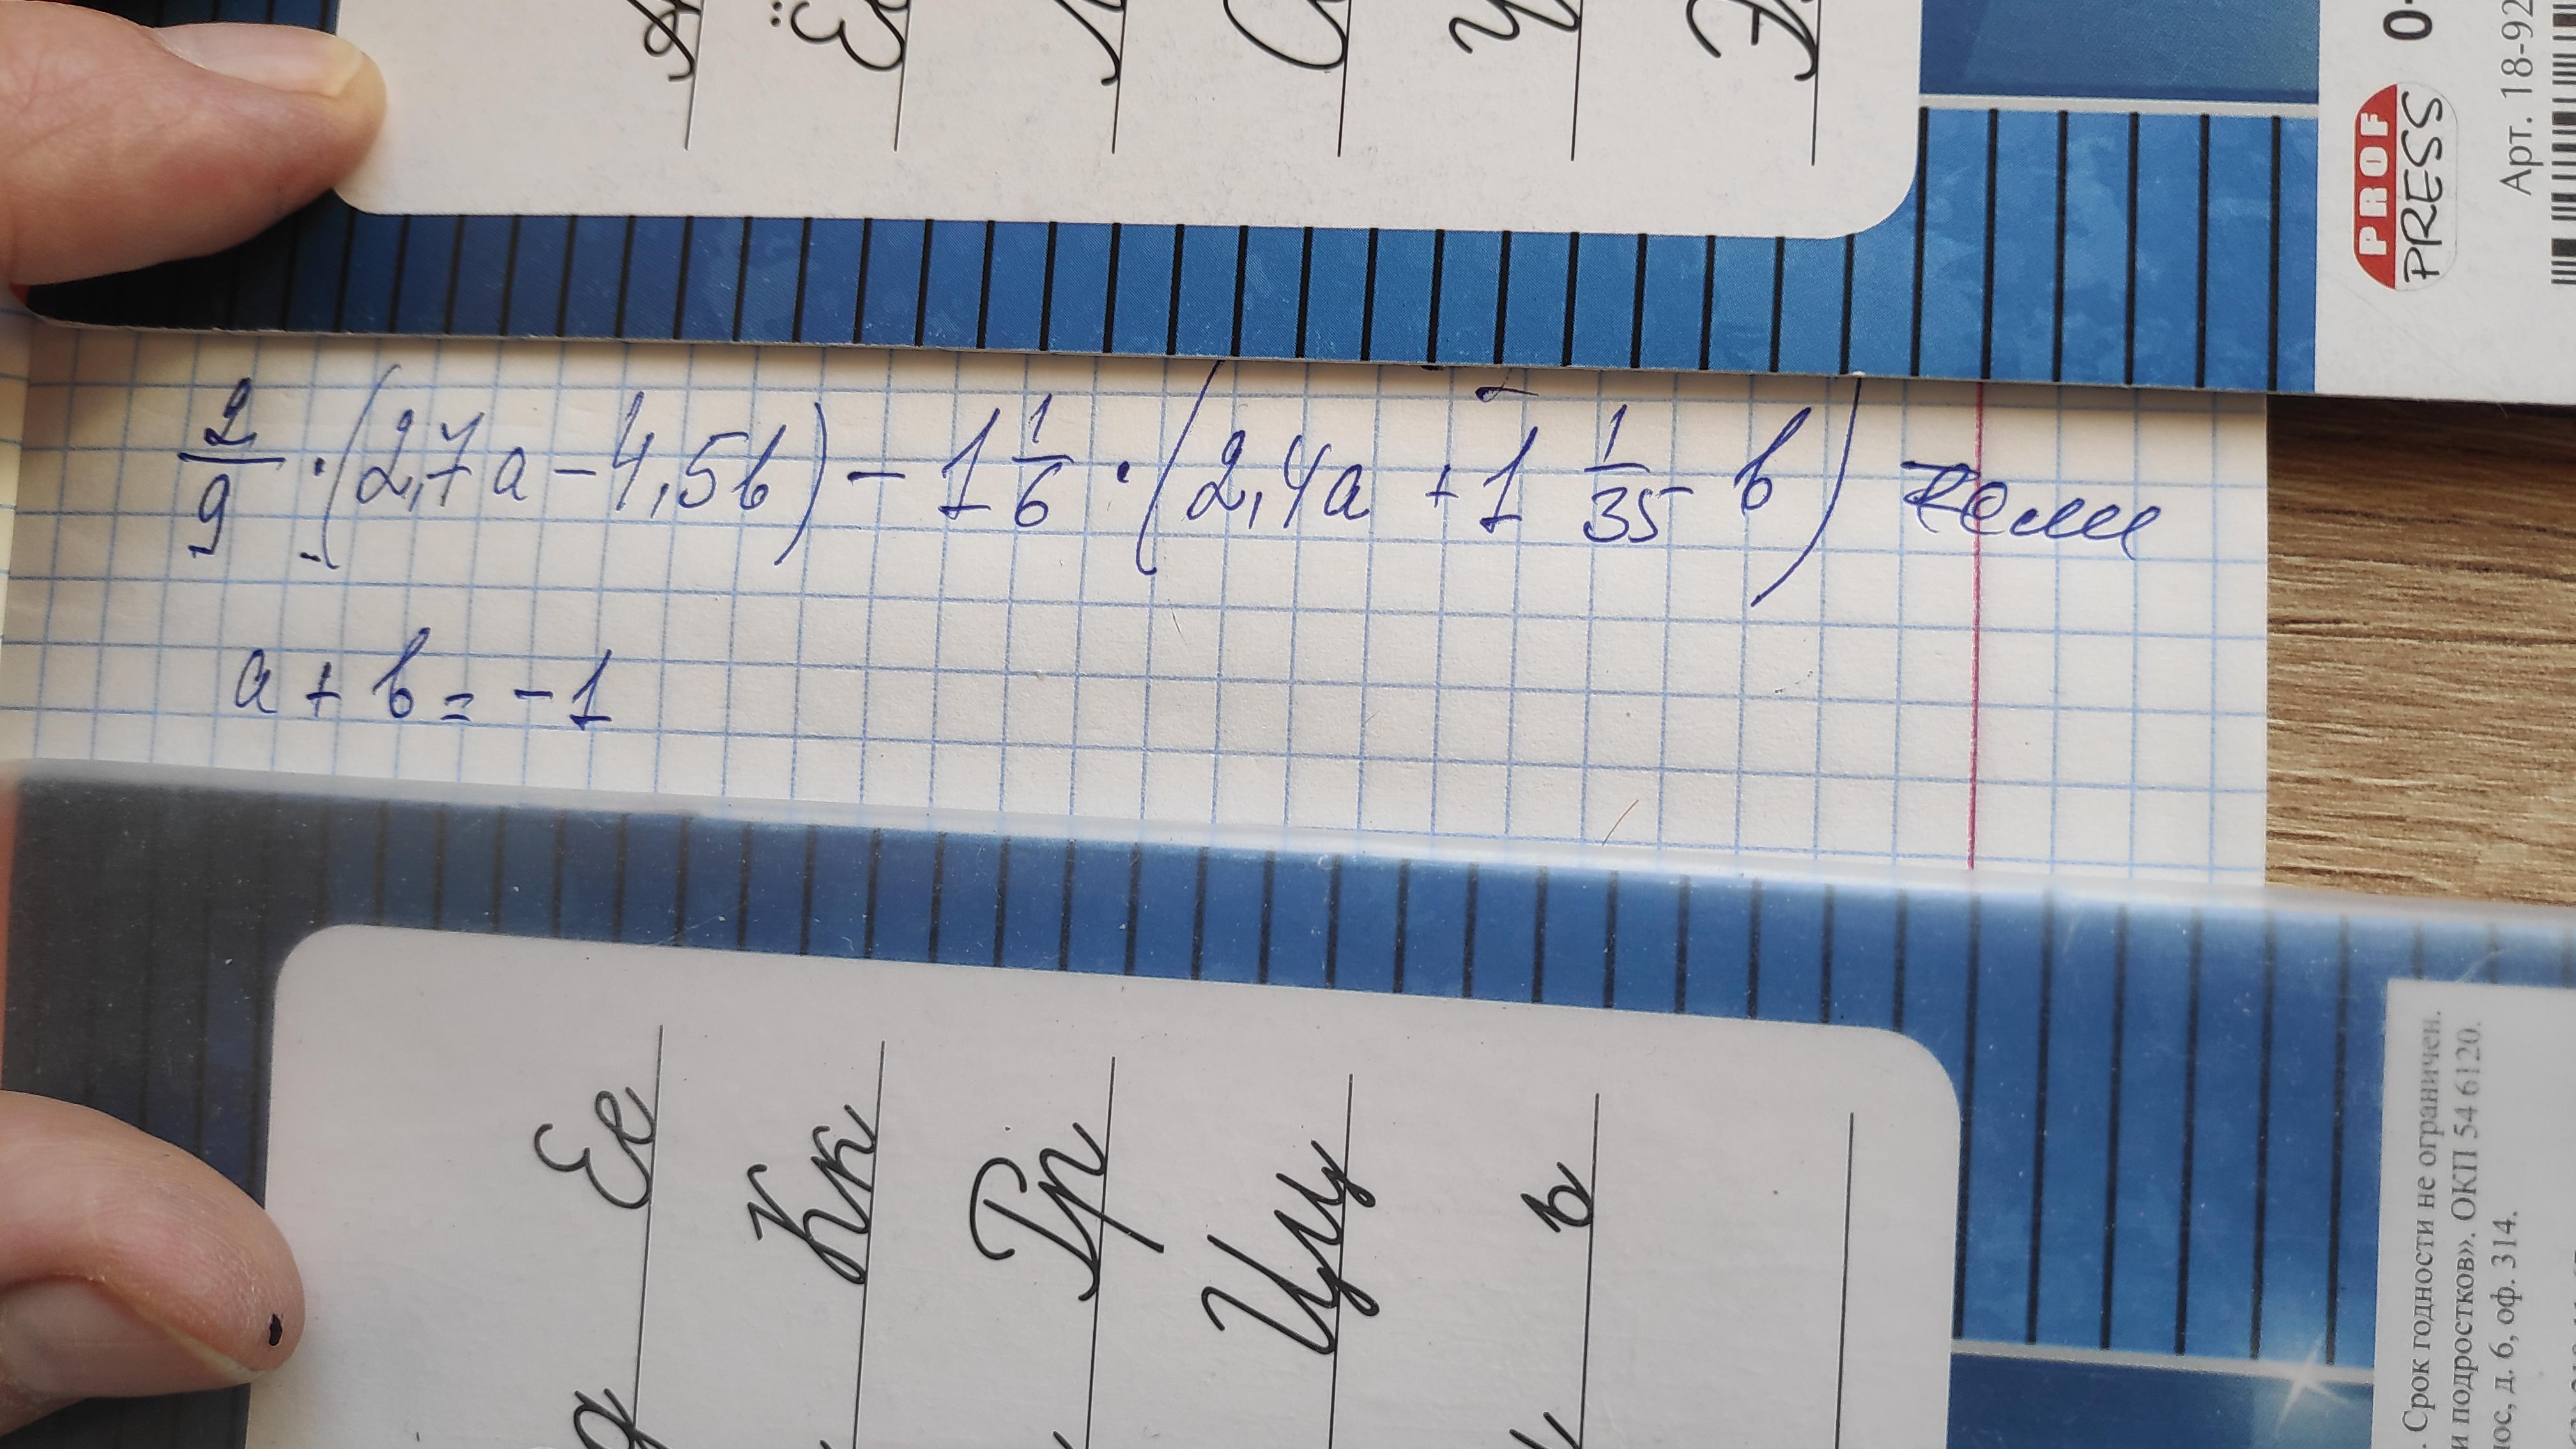 Ё
С
Ч
Э
0+
PROF
PRESS
Арт. 18-92
2/9 · (2,7a - 4,5b) - 1 1/6 · (2,4a + 1 1/35 b) если
a + b = -1
Ее
Кк
Рр
Цц
ь
Срок годности не ограничен.
и подростков». ОКП 54 6120.
нос, д. 6, оф. 314.